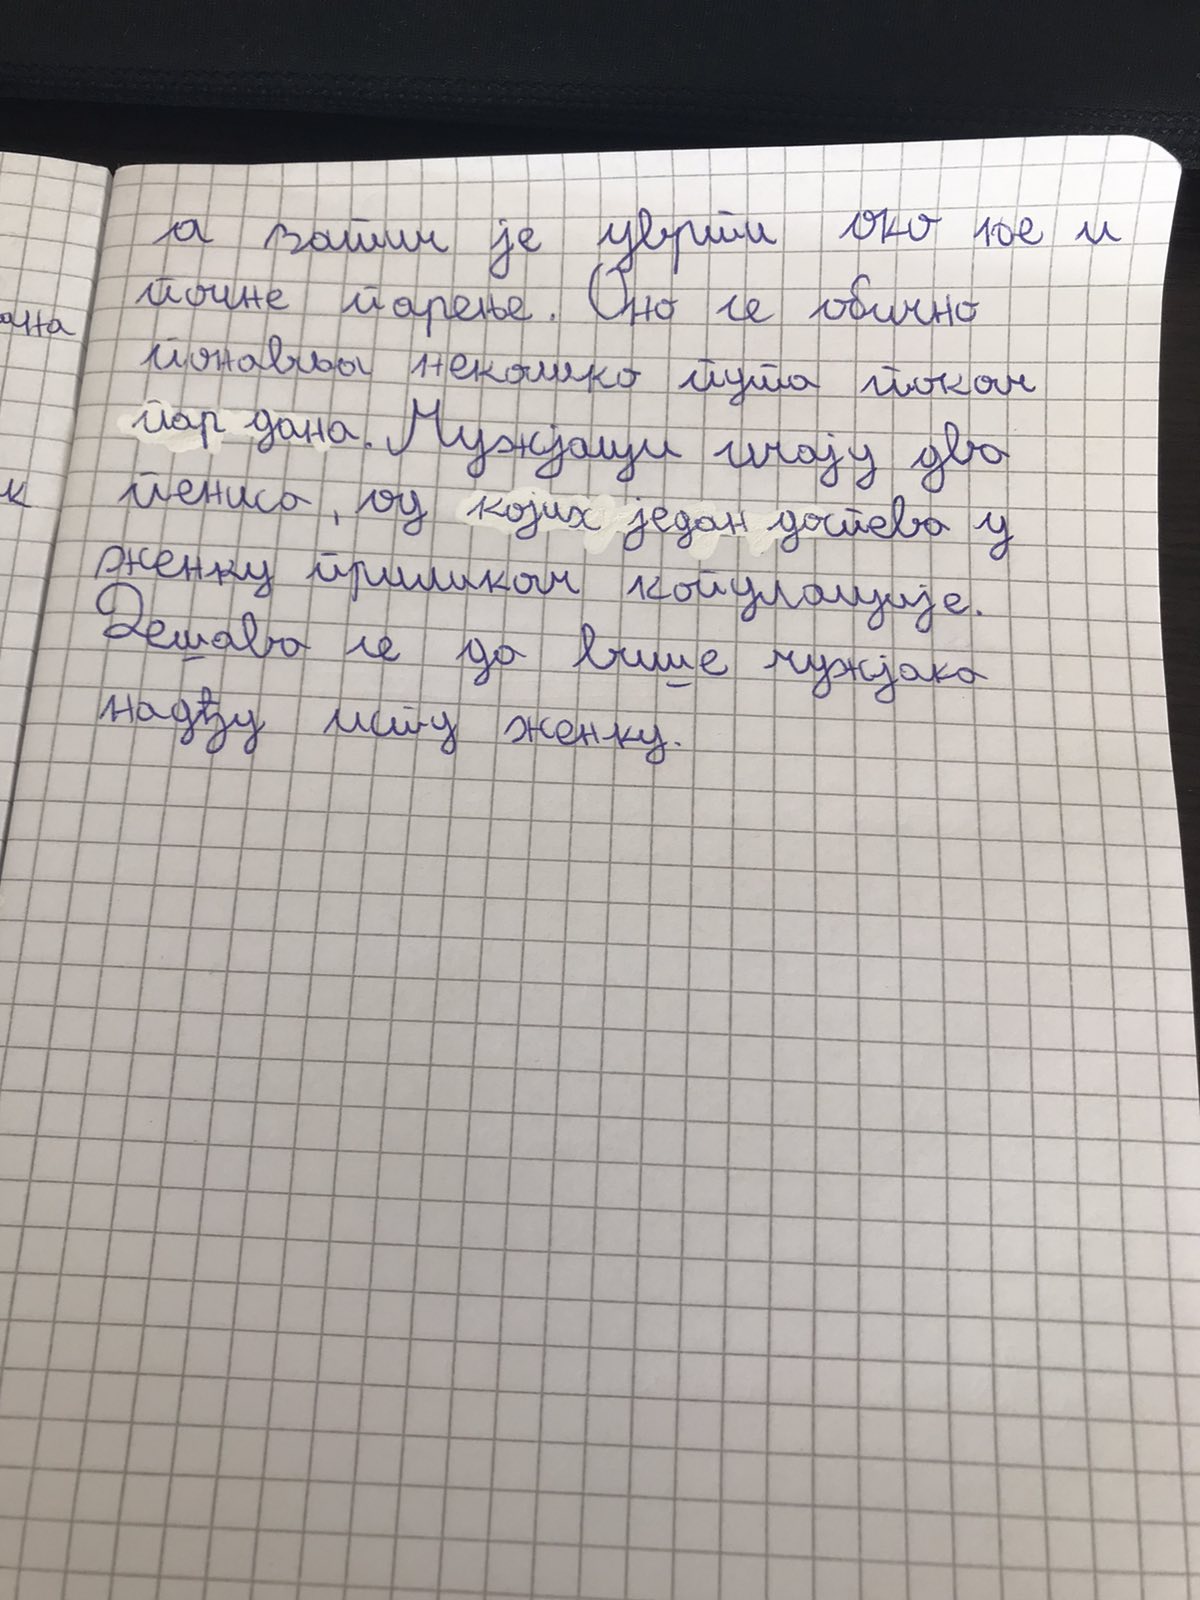 а затим је уврти око ње и
почне парење. Оно се обично
понавља неколико пута током
пар дана. Мужјаци имају два
пениса, од којих један доспева у
женку приликом копулације.
Дешава се да више мужјака
нађу исту женку.